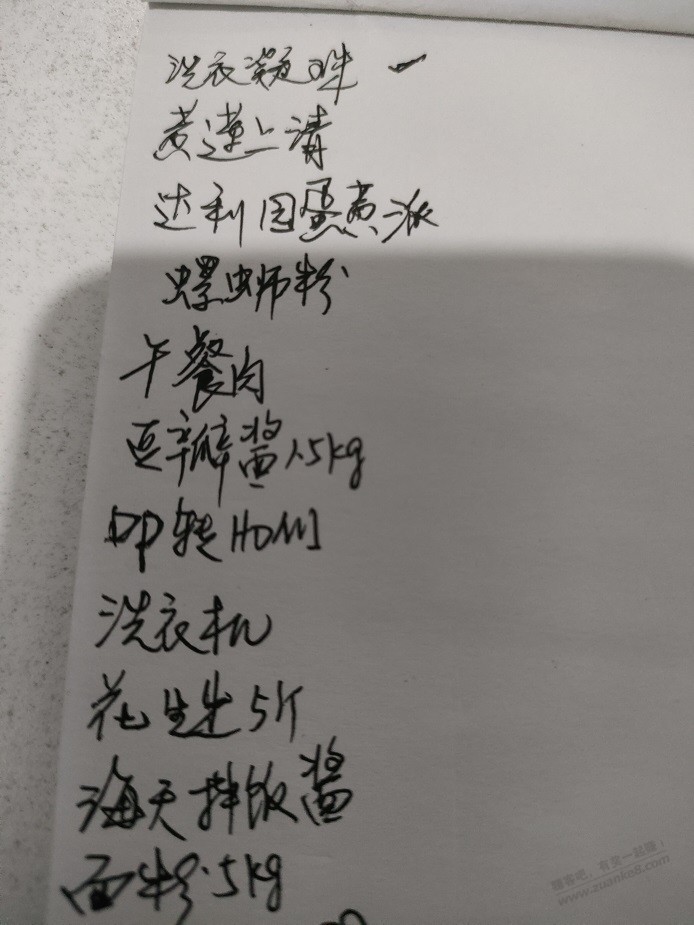 洗衣凝珠
黄连上清
达利园蛋黄派
螺蛳粉
午餐肉
豆瓣酱1.5kg
DP转HDMI
洗衣机
花生 5斤
海天拌饭酱
面粉5kg
赚客吧，有奖一起赚！
www.zuanke8.com